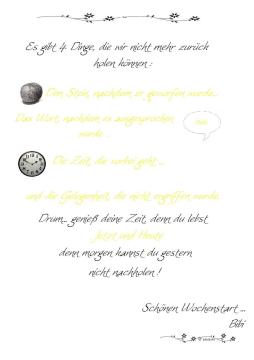 Es gibt 4 Dinge, die wir nicht mehr zurück
holen können :
Den Stein, nachdem er geworfen wurde...
Das Wort, nachdem es ausgesprochen
wurde ..
Die Zeit, die vorbei geht ....
und die Gelegenheit, die nicht ergriffen wurde.
Drum... genieß deine Zeit, denn du lebst
Jetzt und Heute
denn morgen kannst du gestern
nicht nachholen !
Schönen Wochenstart ...
Bibi